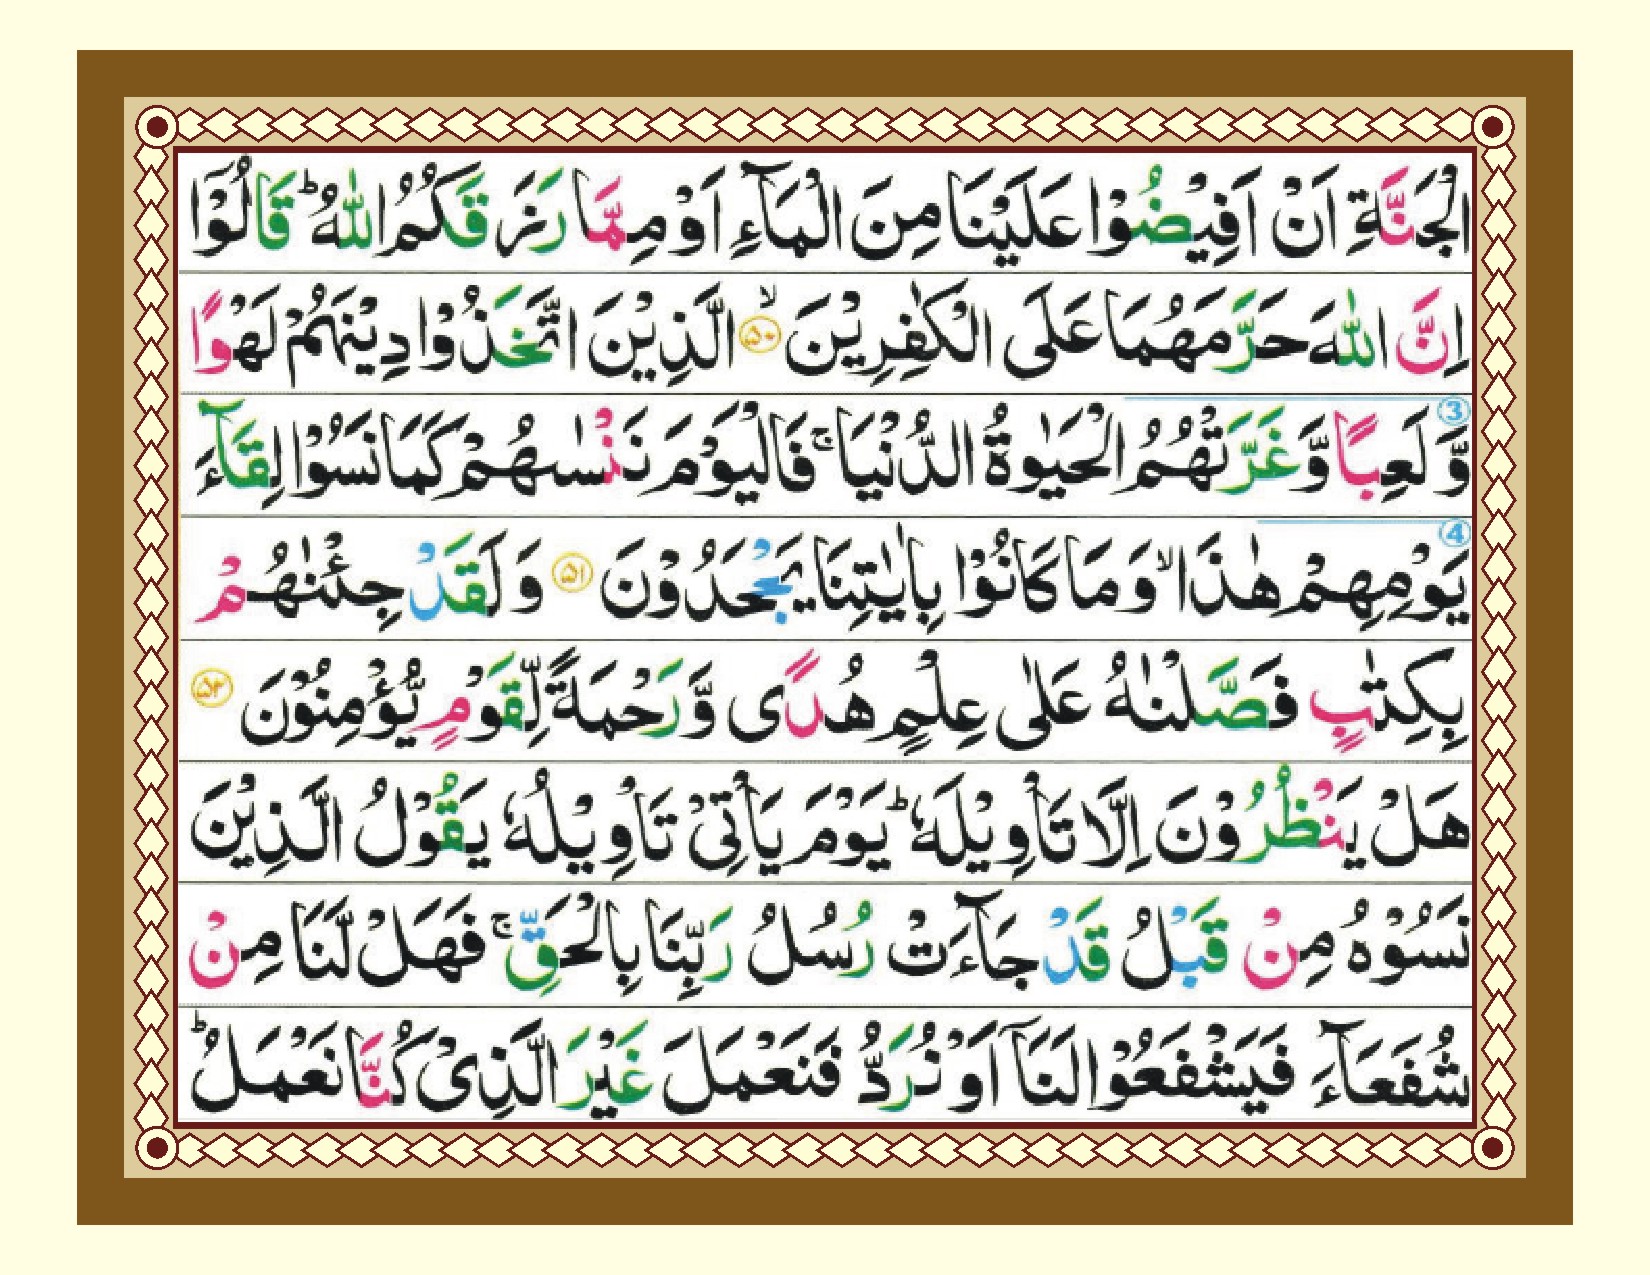 الْجَنَّةِ اَنْ اَفِيْضُوْا عَلَيْنَا مِنَ الْمَآءِ اَوْ مِمَّا رَزَقَكُمُ اللّٰهُ ؕ قَالُوْۤا
اِنَّ اللّٰهَ حَرَّمَهُمَا عَلَى الْكٰفِرِيْنَ ۙ ۵۰ الَّذِيْنَ اتَّخَذُوْا دِيْنَهُمْ لَهْوًا
③ وَّ لَعِبًا وَّ غَرَّتْهُمُ الْحَيٰوةُ الدُّنْيَا ۚ فَالْيَوْمَ نَنْسٰىهُمْ كَمَا نَسُوْا لِقَآءَ
④ يَوْمِهِمْ هٰذَا ۙ وَ مَا كَانُوْا بِاٰيٰتِنَا يَجْحَدُوْنَ ۵۱ وَ لَقَدْ جِئْنٰهُمْ
بِكِتٰبٍ فَصَّلْنٰهُ عَلٰى عِلْمٍ هُدًى وَّ رَحْمَةً لِّقَوْمٍ يُّؤْمِنُوْنَ ۵۲
هَلْ يَنْظُرُوْنَ اِلَّا تَاْوِيْلَهٗ ؕ يَوْمَ يَاْتِيْ تَاْوِيْلُهٗ يَقُوْلُ الَّذِيْنَ
نَسُوْهُ مِنْ قَبْلُ قَدْ جَآءَتْ رُسُلُ رَبِّنَا بِالْحَقِّ ۚ فَهَلْ لَّنَا مِنْ
شُفَعَآءَ فَيَشْفَعُوْا لَنَاۤ اَوْ نُرَدُّ فَنَعْمَلَ غَيْرَ الَّذِيْ كُنَّا نَعْمَلُ ؕ